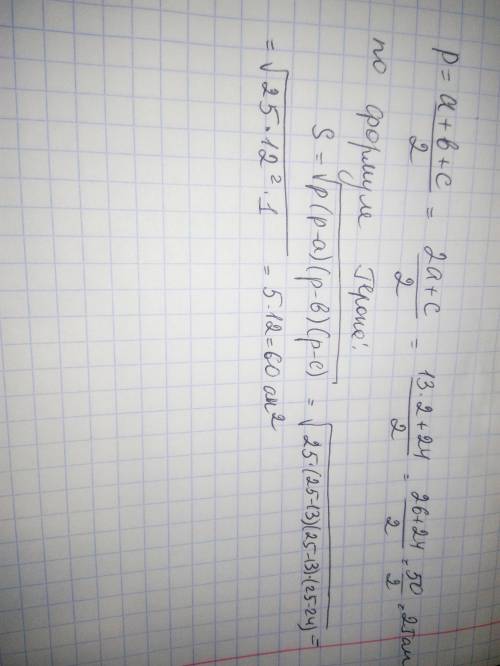 p = a+b+c/2 = 2a+c/2 = 13·2+24/2 = 26+24/2 = 50/2 = 25 см
по формуле Герона:
S = √p(p-a)(p-b)(p-c) = √25·(25-13)(25-13)·(25-24) =
= √25·12²·1 = 5·12 = 60 см²